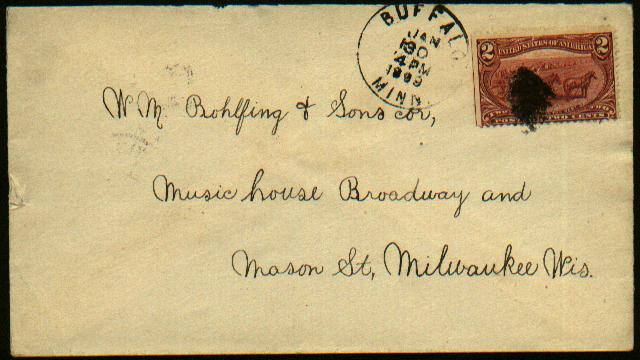 BUFFALO
JAN
30
4 PM
1899
MINN.
2 UNITED STATES OF AMERICA 2
TWO CENTS
W M. Bohlfing & Sons cor,
Music house Broadway and
Mason St, Milwaukee Wis.